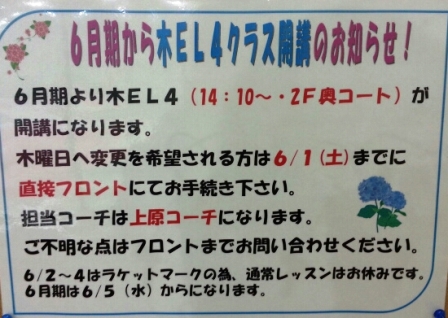 6月期から木EL4クラス開講のお知らせ!
6月期より木EL4(14:10~・2F奥コート)が
開講になります。
木曜日へ変更を希望される方は6/1(土)までに
直接フロントにてお手続き下さい。
担当コーチは上原コーチになります。
ご不明な点はフロントまでお問い合わせください。
6/2~4はラケットマークの為、通常レッスンはお休みです。
6月期は6/5(水)からになります。